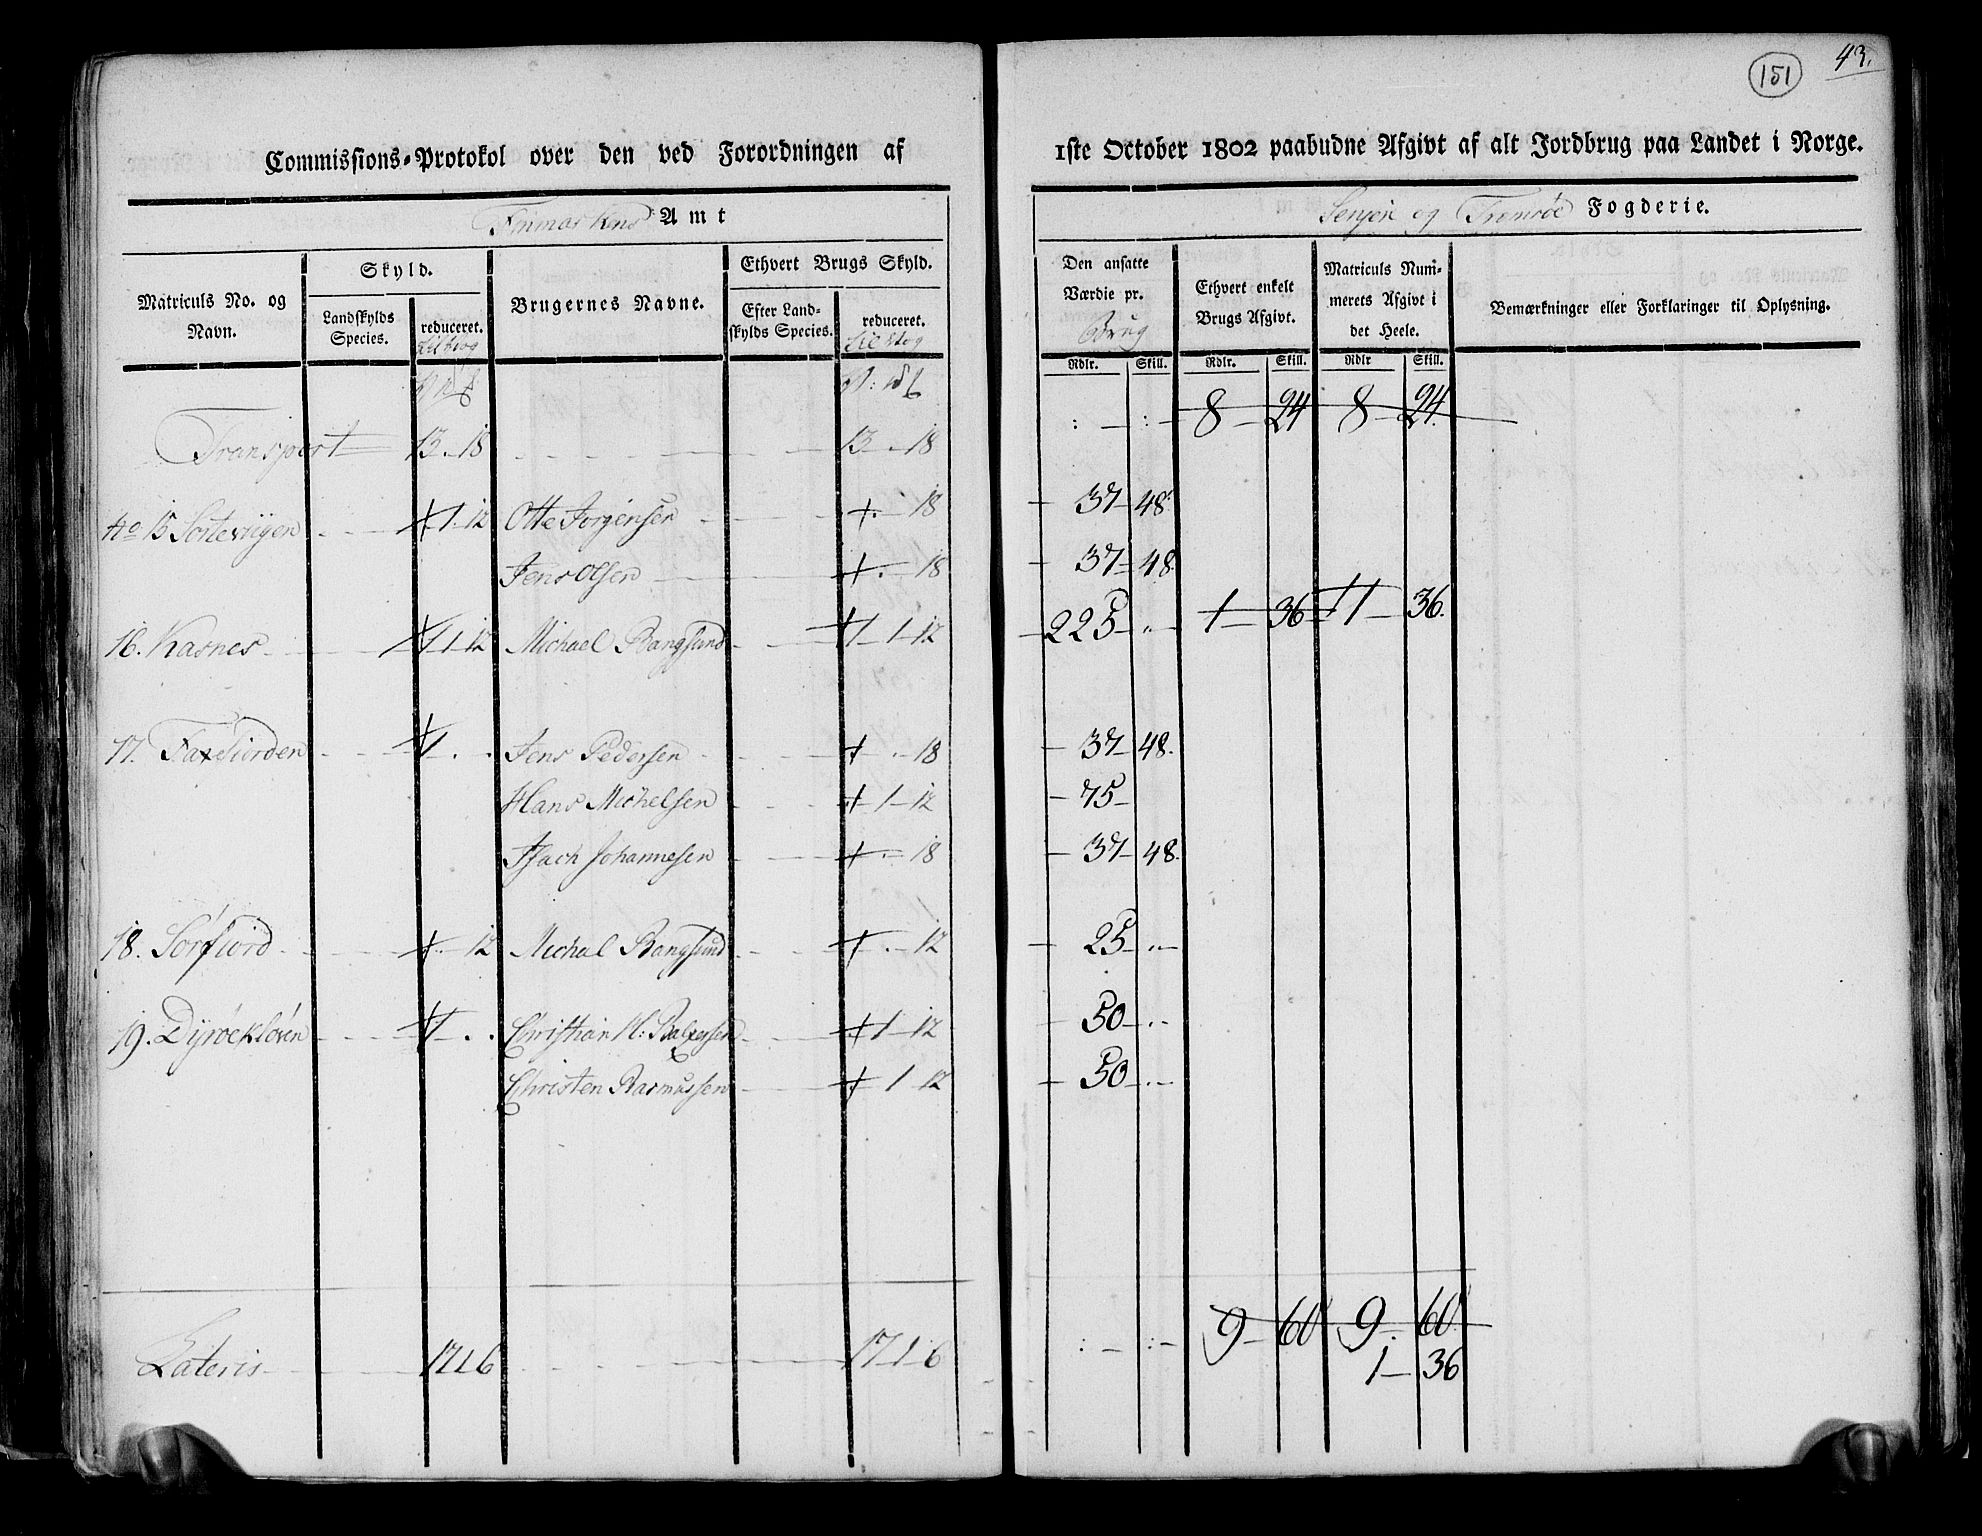 43.
151
Commissions-Protokol over den ved Forordningen af 1ste October 1802 paabudne Afgivt af alt Jordbrug paa Landet i Norge.
Finmarkens Amt
Senjen og Tromsöe Fogderie.
Matriculs No. og Navn.
Skyld.
Landskylds Species.
reduceret.
Brugernes Navne.
Ethvert Brugs Skyld.
Efter Landskylds Species.
reduceret.
Den ansatte Værdie pr. Brug
Ethvert enkelt Brugs Afgivt.
Matriculs Nummerets Afgivt i det Heele.
Bemærkninger eller Forklaringer til Oplysning.
Rdlr. Skill. Rdlr. Skill. Rdlr Skill.
8 24 8 24
Transport 13 - 18 13 - 18
No 15 Sortevigen 1 12 Otte Jorgensen 18 37 48
Jens Olsen 18 37 48
16. Kasnes 1 12 Michael Bangsund 1 12 225 1 36 1 36.
17. Faxfiorden Jens Pedersen 18 37 48
Hans Michelsen 1 12 75
Isach Johannesen 18 37 48
18. Sörfiord 12 Michal Bangsund 12 25
19. Dyröeklöven Christian H: Balzersen 1 12 50
Christen Rasmussen 1 12 50
9 60 9 60
Lateris 17 1 6 17 1 6 1 36